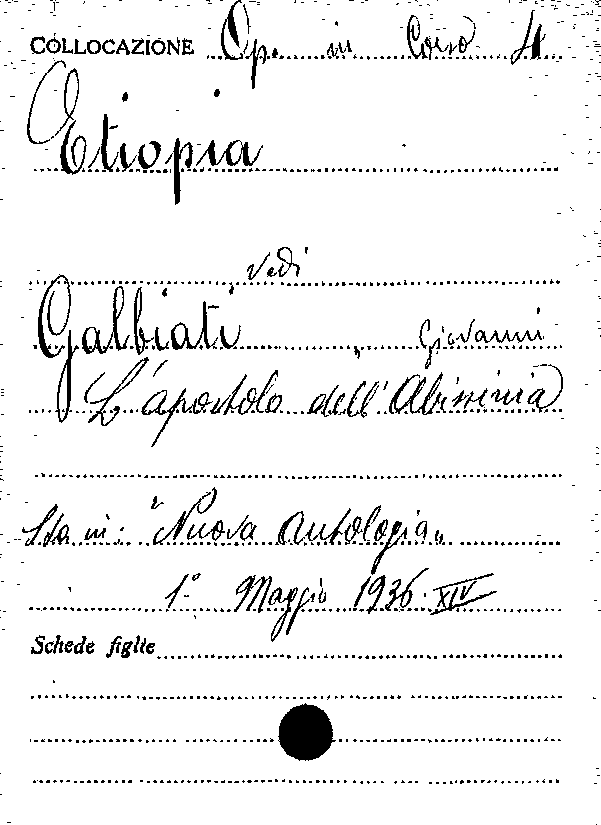 COLLOCAZIONE Op. in Corso 4
Etiopia
Vedi
Galbiati, Giovanni
L'apostolo dell'Abissinia
Sta in: "Nuova Antologia"
1° Maggio 1936. XIV
Schede figlie